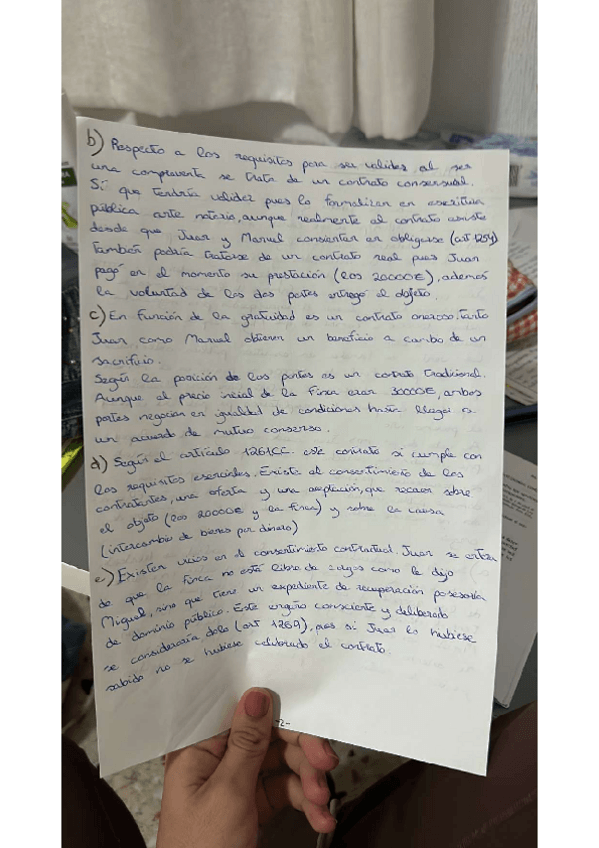 b) Respecto a los requisitos para ser valides al ser
una compraventa se trata de un contrato consensual.
Sí que tendría validez pues lo formalizan en escritura
pública ante notario, aunque realmente el contrato existe
desde que Juan y Manuel consienten en obligarse (art 1254)
También podría tratarse de un contrato real pues Juan
pagó en el momento su prestación (los 20000€), además
la voluntad de las dos partes entregó el objeto.
c) En función de la gratuidad es un contrato oneroso, tanto
Juan como Manuel obtienen un beneficio a cambio de un
sacrificio.
Según la posición de las partes es un contrato tradicional.
Aunque el precio inicial de la finca eran 30000€, ambos
partes negocian en igualdad de condiciones hasta llegar a
un acuerdo de mutuo consenso.
d) Según el artículo 1261CC. este contrato sí cumple con
los requisitos esenciales. Existe el consentimiento de los
contratantes, una oferta y una aceptación, que recaen sobre
el objeto (los 20000€ y la finca) y sobre la causa
(intercambio de bienes por dinero)
e) Existen vicios en el consentimiento contractual. Juan se entera
de que la finca no está libre de cargas como le dijo
Miguel, sino que tiene un expediente de recuperación posesoria
de dominio público. Este engaño consciente y deliberado
se consideraría dolo (art 1269), pues si Juan lo hubiese
sabido no se hubiese celebrado el contrato.
-2-